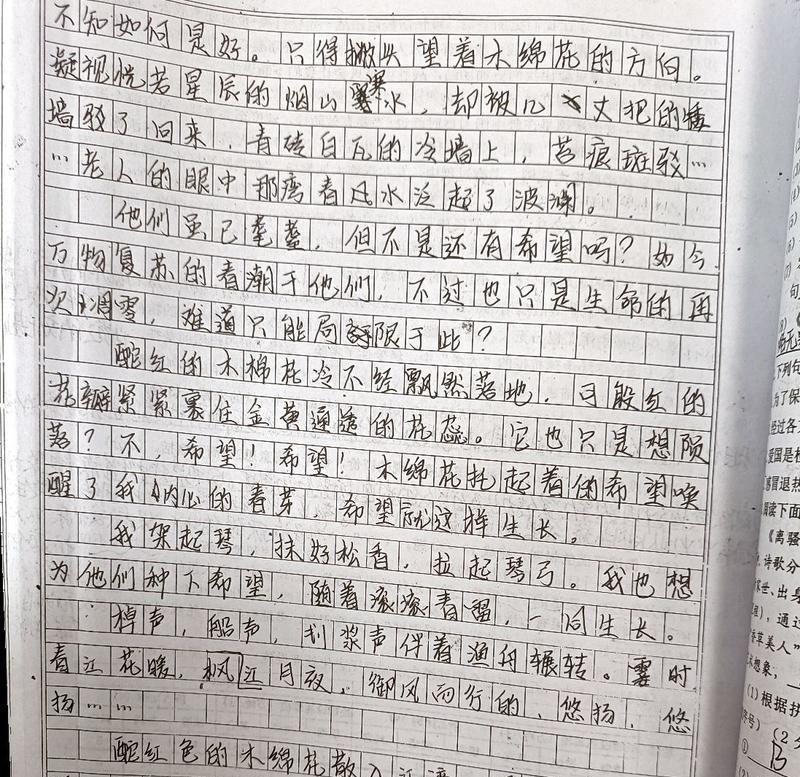 不知如何是好。只得掀头望着木绵花的方向。
凝视恍若星辰的烟山瀑水，却被几丈把的矮
墙驳了回来，青砖白瓦的冷墙上，苔痕斑驳…
…老人的眼中那湾春风水泛起了波澜。
他们虽已耄耋，但不是还有希望吗？如今
万物复苏的春潮于他们，不过也只是生命的再
次凋零，难道只能局限于此？
酡红的木棉花冷不经飘然落地，可殷红的
花瓣紧紧裹住金黄通透的花蕊。它也只是想陨
落？不，希望！希望！木绵花托起着的希望唤
醒了我内心的春芽，希望就这样生长。
我架起琴，抹好松香，拉起琴弓。我也想
为他们种下希望，随着滚滚春雷，一同生长。
棹声，船声，划桨声伴着渔舟辗转。霎时
春江花暖，枫江月夜，御风而行的，悠扬，悠
扬……
酡红色的木绵花散入江
句
下列句
为了保
经过各
爱国是
感冒退热
阅读下面
《离骚
诗歌分
家世、出身
通过
香草美人”
术想象，
(1)根据
序号）（2分
①
B